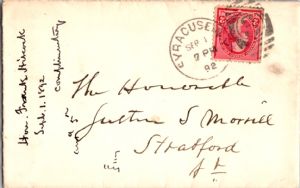 Hon. Frank Hiscock
Sept. 1. 1892
Complimentary
SYRACUSE
SEP 1
7 PM
92
The Honorable
Justin S Morrill
Stratford
Vt